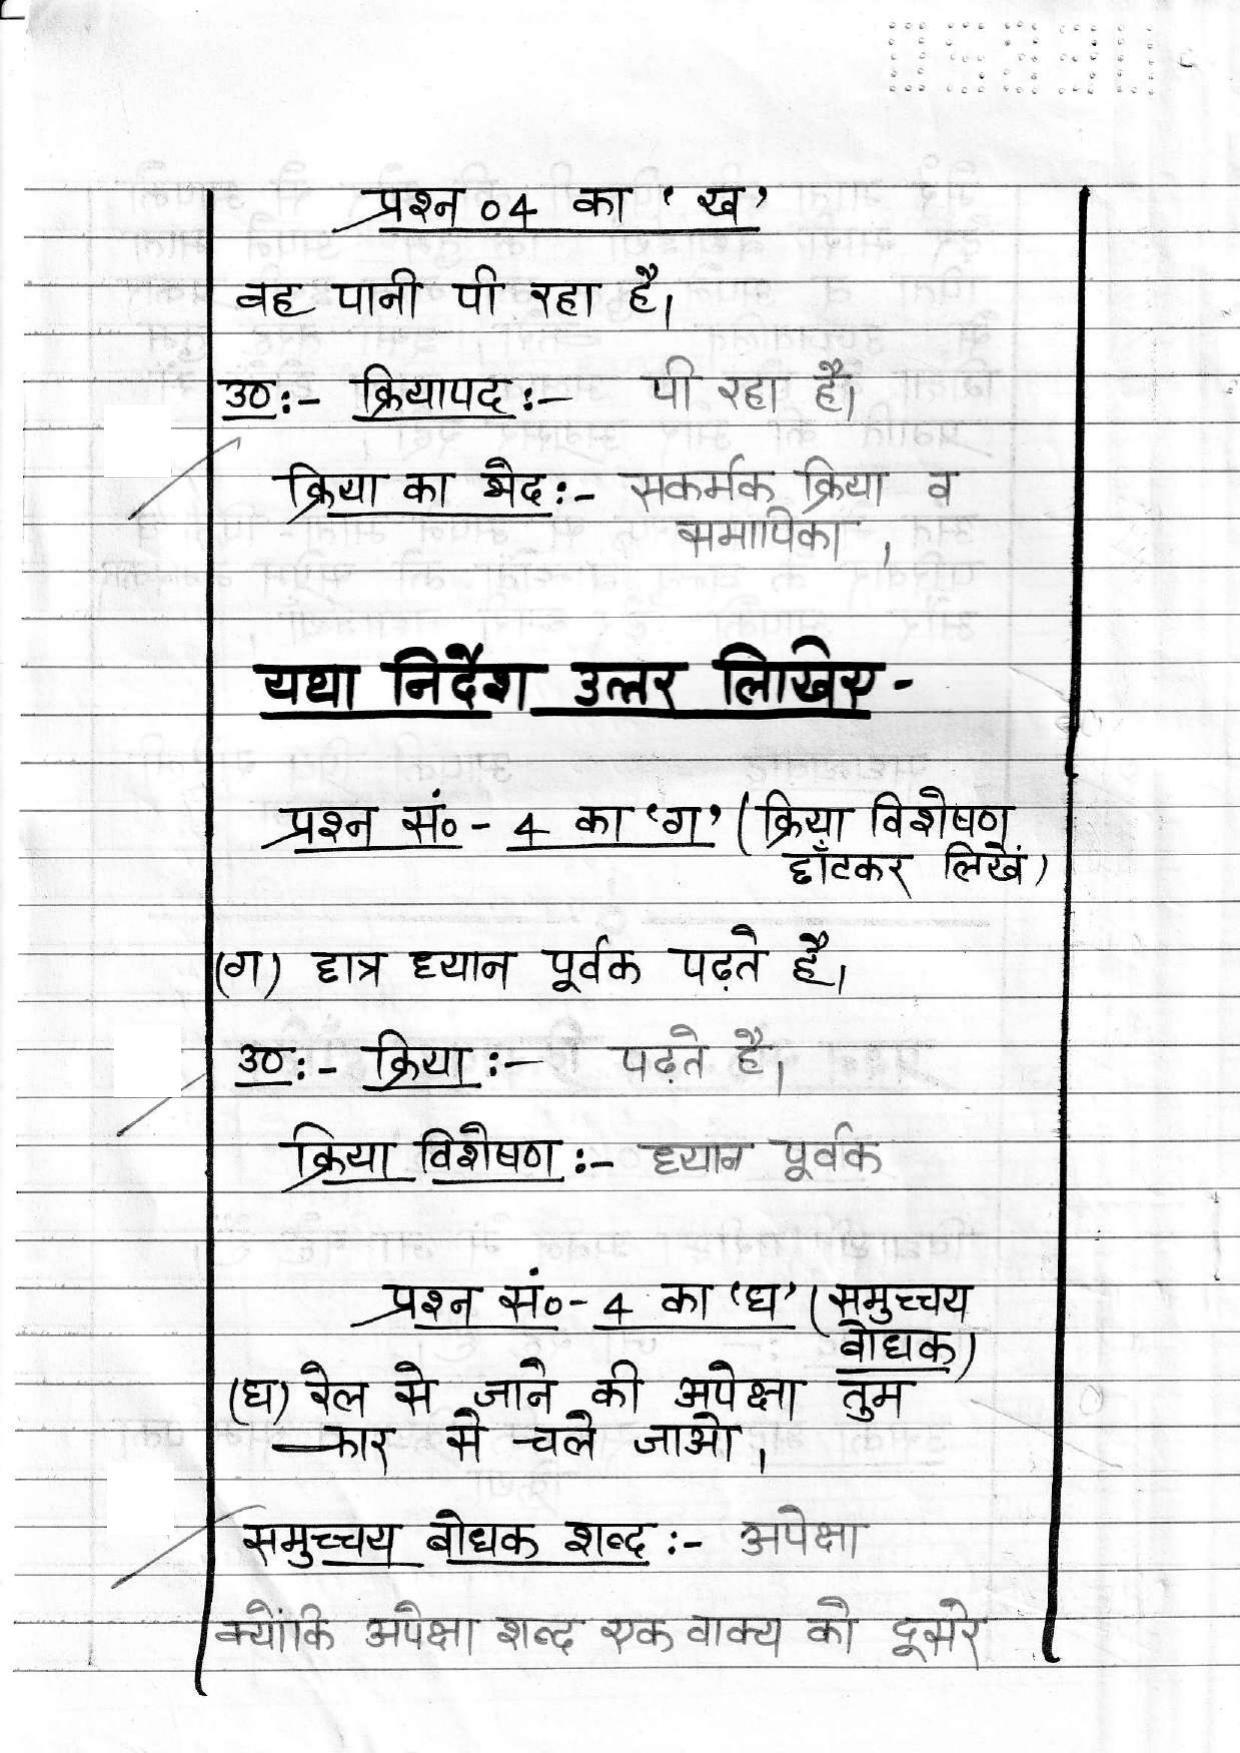 प्रश्न 04 का 'ख'
वह पानी पी रहा है।
उ०:- क्रियापद:- पी रहा है।
क्रिया का भेद:- सकर्मक क्रिया व
समापिका ।
यथा निर्देश उत्तर लिखिए -
प्रश्न सं०- 4 का 'ग' (क्रिया विशेषण
छाँटकर लिखें)
(ग) छात्र ध्यान पूर्वक पढ़ते है।
उ०:- क्रिया:- पढ़ते है।
क्रिया विशेषण:- ध्यान पूर्वक
प्रश्न सं०- 4 का 'घ' (समुच्चय
बोधक)
(घ) रेल से जाने की अपेक्षा तुम
कार से चले जाओ।
समुच्चय बोधक शब्द:- अपेक्षा
क्योंकि अपेक्षा शब्द एक वाक्य को दूसरे